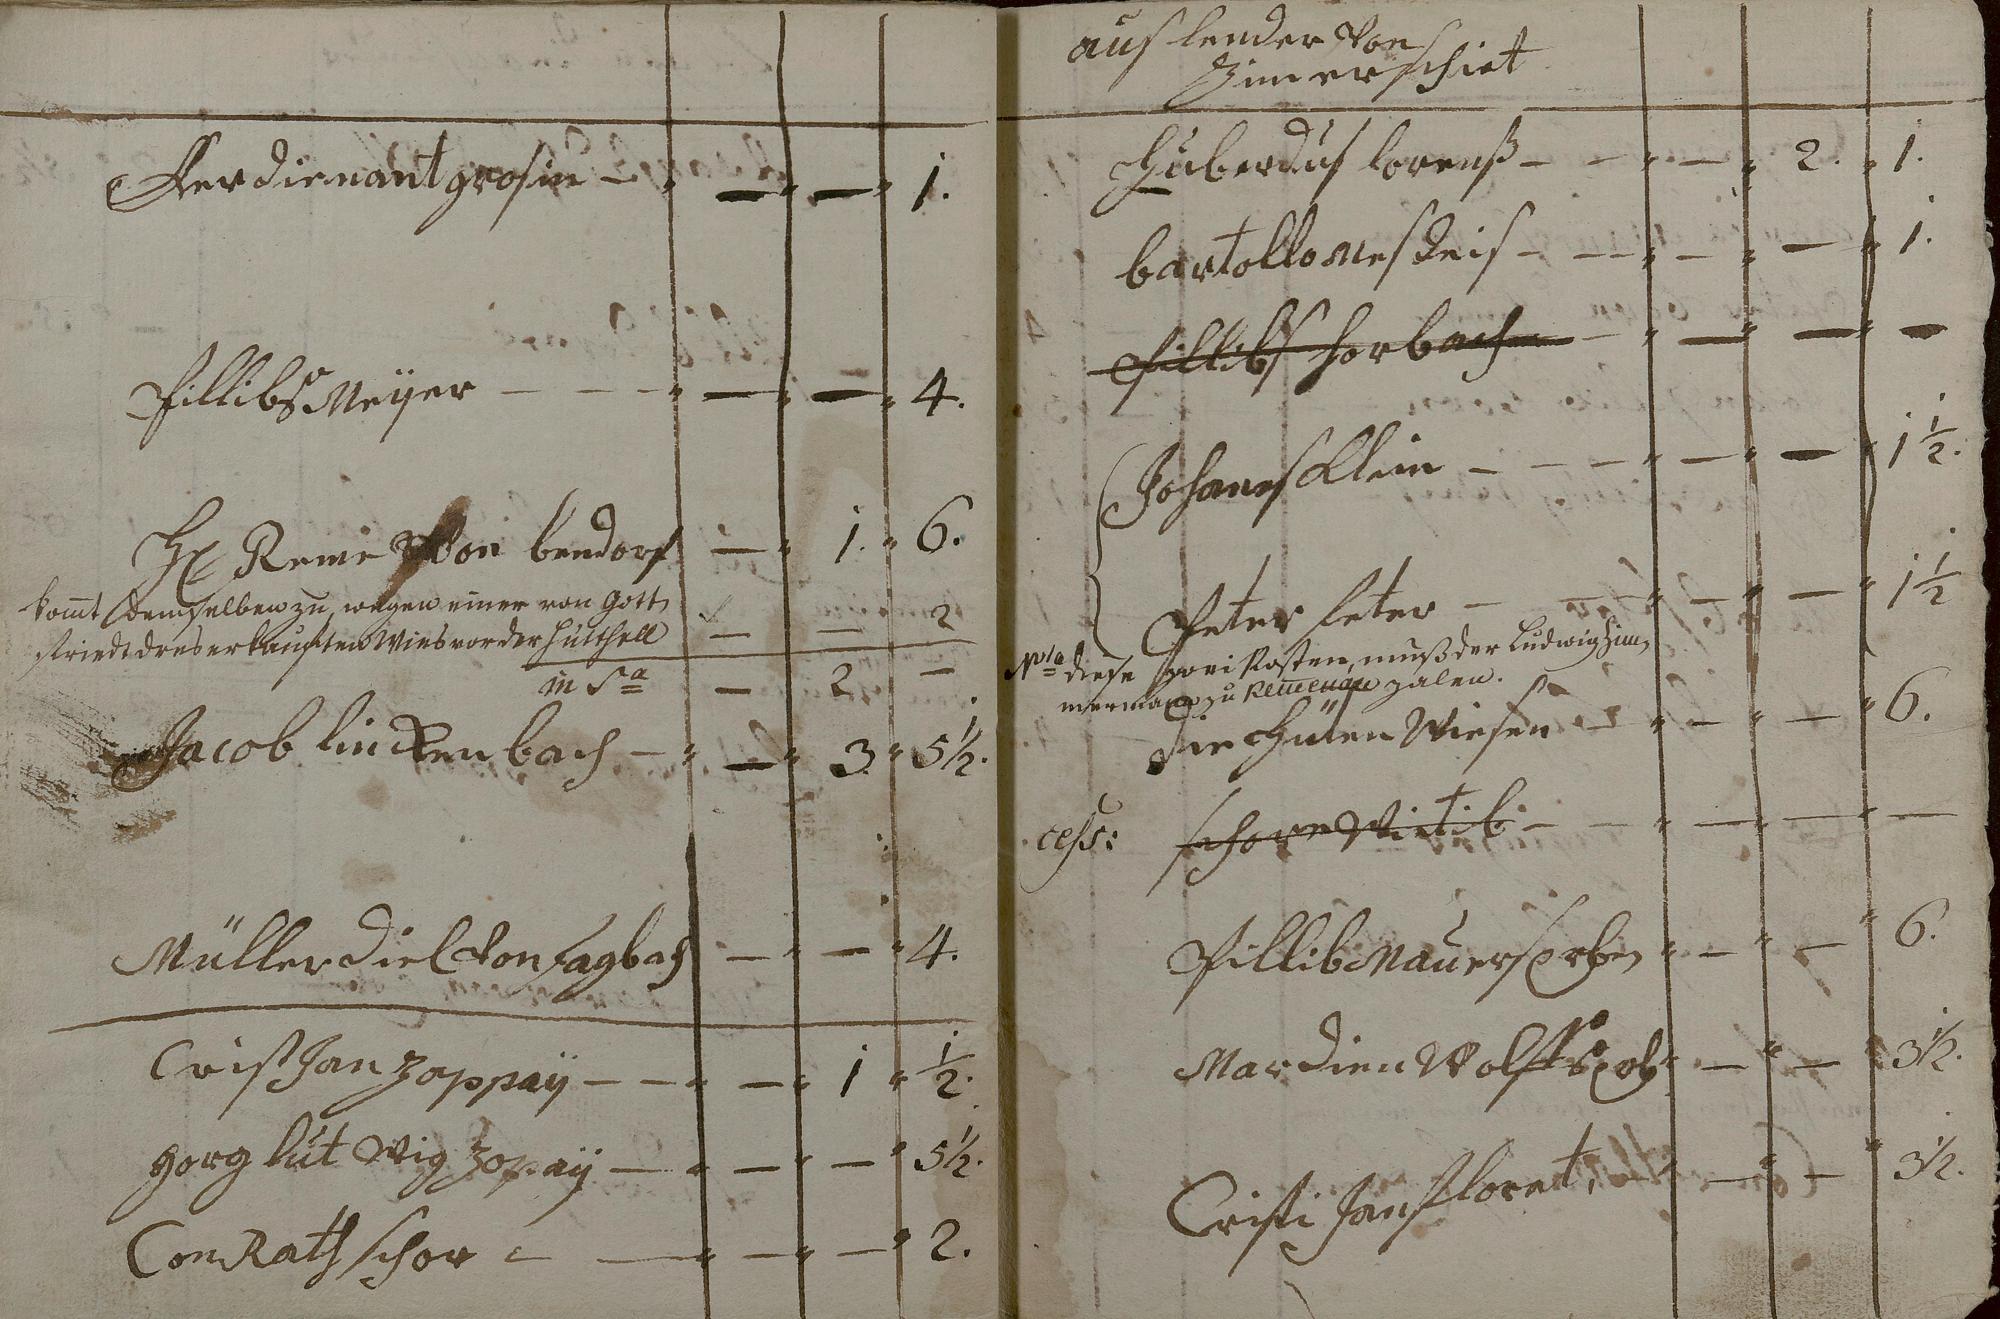 Ferdienant grosin — " — " — " 1.
Pillibs Meÿer — — — " — " — " 4.
H Reme Von bendorf — " 1. " 6.
kommt demselben zu, wegen einer von Gott
friedt dres erkauften Wies vor der Hütthell — — 2
in Sa — 2 —
Jacob linckenbach — " — " 3. " 5½.
Müller diel Von fagbach — " — " 4.
Crist Jan Zoppaÿ — — " — " 1 " ½.
gorg lut Wig Zopaÿ — " — " — " 5½.
ConRath schor — — " — " — " 2.
aus lender Von
Zimerschiet
Huberdus lorenß — — " — " 2. " 1.
bartollomes deis — — " — " — " 1.
Pillibs horbach — " — " — " —
Johanes Klein — — — " — " — " 1½.
Peter feter — — " — " — " 1½
Nta diese zwei Posten, muß der Ludwig Zim,
mermann zu Kemenau zalen.
die Hüten Wiesen — " — " — " 6.
cess: schore Witib — — " — " — " —
Pillib Mauers erben " — " — " 6.
Mardien Wolff " — " — " 3½.
Cristi Jan floret, " — " — " 3½.